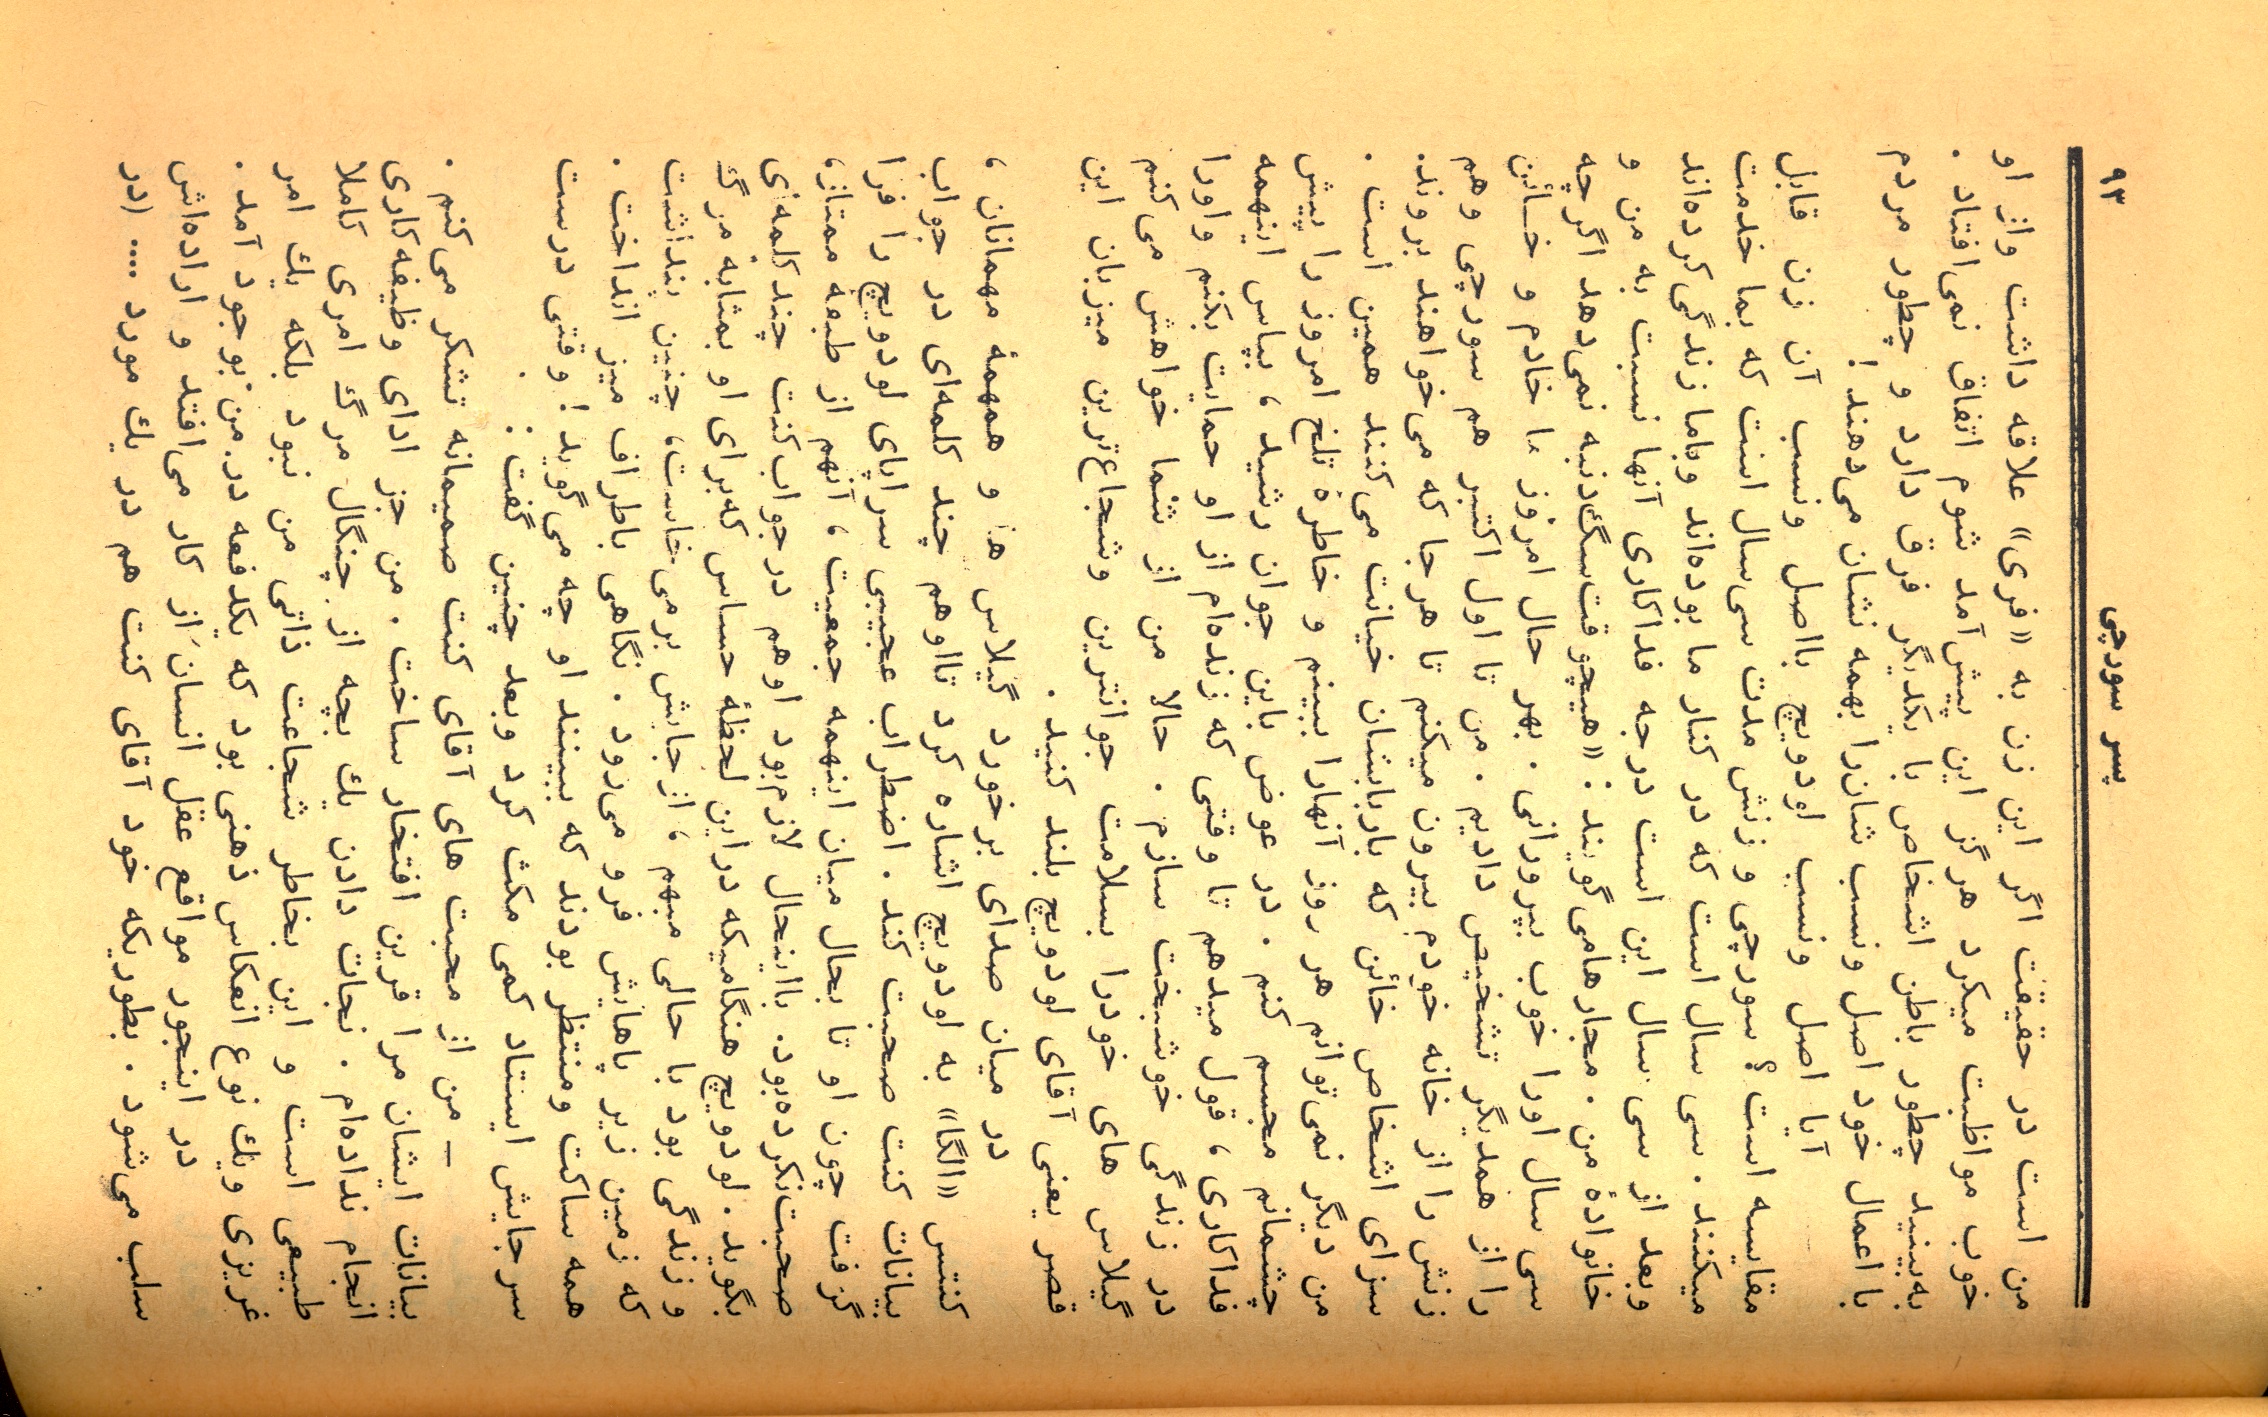 ۹۳
پسر سورچی
من است در حقیقت اگر این زن به «فری» علاقه داشت واز او
خوب مواظبت میکرد هرگز این پیش‌آمد شوم اتفاق نمی‌افتاد .
به‌بینید چطور باطن اشخاص با یکدیگر فرق دارد و چطور مردم
با اعمال خود اصل ونسب شان‌را بهمه نشان می‌دهند !
آیا اصل ونسب لودویچ بااصل ونسب آن زن قابل
مقایسه است ؟ سورچی و زنش مدت سی‌سال است که بما خدمت
میکنند . سی سال است که در کنار ما بوده‌اند وباما زندگی‌کرده‌اند
وبعد از سی سال این است درجه فداکاری آنها نسبت به من و
خانوادهٔ من . مجارهامی‌گویند : «هیچوقت‌سگ‌دنبه نمی‌دهد اگرچه
سی سال اورا خوب بپرورانی . بهر حال امروز ما خادم و خائن
را از همدیگر تشخیص دادیم . من تا اول اکتبر هم سورچی وهم
زنش را از خانه خودم بیرون میکنم تا هرجا که می‌خواهند بروند.
سزای اشخاص خائن که باربابشان خیانت می‌کنند همین است .
من دیگر نمی‌توانم هر روز آنهارا ببینم و خاطرهٔ تلخ امروز را پیش
چشمانم مجسم کنم . در عوض باین جوان رشید ، بپاس اینهمه
فداکاری ، قول میدهم تا وقتی که زنده‌ام از او حمایت بکنم واورا
در زندگی خوشبخت سازم . حالا من از شما خواهش می‌کنم
گیلاس های خودرا بسلامت جوانترین وشجاع‌ترین میزبان این
قصر یعنی آقای لودویچ بلند کنید .
در میان صدای برخورد گیلاس ها و همهمهٔ مهمانان ،
کنتس «الگا» به لودویچ اشاره کرد تااوهم چند کلمه‌ای در جواب
بیانات کنت صحبت کند . اضطراب عجیبی سراپای لودویچ را فرا
گرفت چون او تا بحال میان اینهمه جمعیت ، آنهم از طبقه ممتاز،
صحبت‌نکرده‌بود. بااینحال لازم‌بود اوهم درجواب‌کنت چندکلمه‌ای
بگوید . لودویچ هنگامیکه دراین لحظهٔ حساس که‌برای او بمثابه مرگ
و زندگی بود با حالی مبهم ، ازجایش برمی‌خاست، چنین پنداشت
که زمین زیر پاهایش فرو می‌رود . نگاهی باطراف میز انداخت .
همه ساکت ومنتظر بودند که ببینند او چه می‌گوید ! وقتی درست
سرجایش ایستاد کمی مکث کرد وبعد چنین گفت :
— من از محبت های آقای کنت صمیمانه تشکر می‌کنم .
بیانات ایشان مرا قرین افتخار ساخت . من جز ادای وظیفه‌کاری
انجام نداده‌ام . نجات دادن یك بچه از چنگال مرگ امری کاملا
طبیعی است و این بخاطر شجاعت ذاتی من نبود بلکه یك امر
غریزی ویك نوع انعکاس ذهنی بود که یکدفعه در من بوجود آمد .
در اینجور مواقع عقل انسان از کار می‌افتد و اراده‌اش
سلب می‌شود . بطوریکه خود آقای کنت هم در یك مورد ... (در